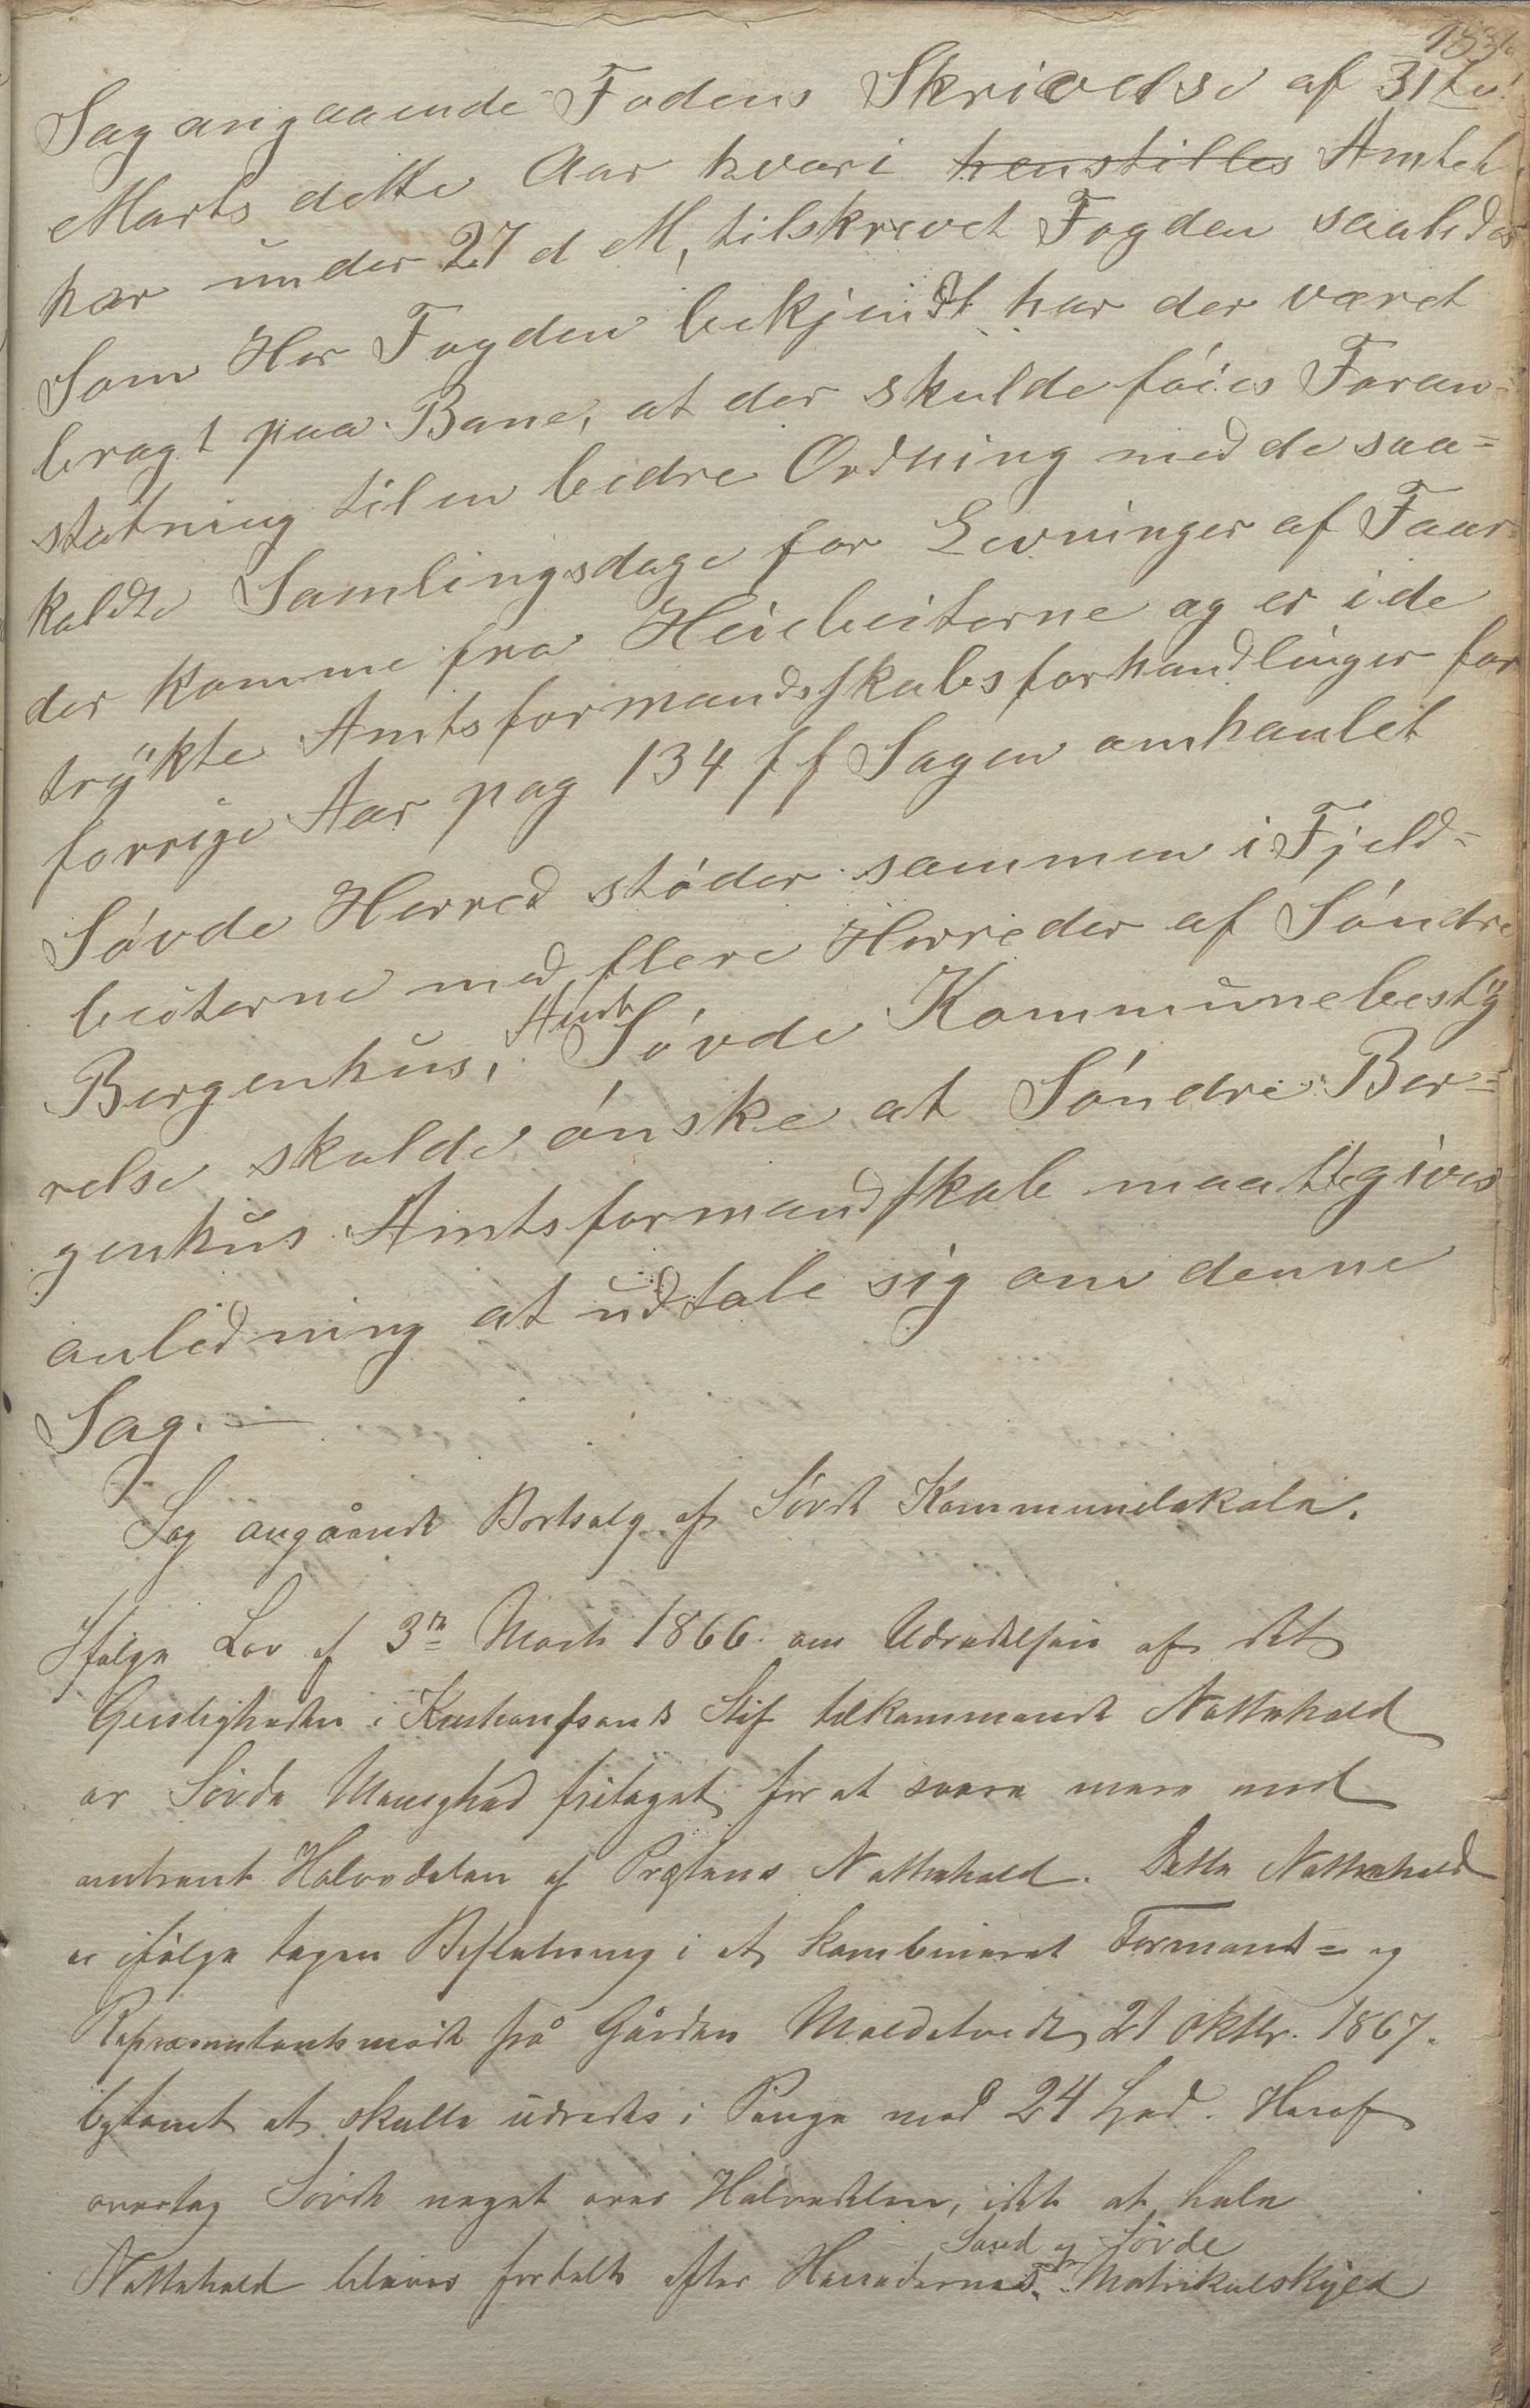 Sag angaaende Fodens Skrivelse af 31te
Marts dette Aar hvori henstilles Amtet
har under 27 d M, tilskrevet Fogden saaledes
Som Her Fogden bekjendt har der været
bragt paa Bane, at der skulde föies Foran=
staltning til en bedre Ordning med de saa=
kaldte Samlingsdage for Levninger af Faar
der komme fra Heiebeiterne og er i de
trykte Amtsformandsskabsforhandlinger for
forrige Aar pag 134 ff Sagen omhanlet
Søvde Herred støder sammen i Fjeld=
beiterne med flere Herreder af Söndre
Bergenhus, Amt Søvde Kommunebesty
relse skulde ønske at Søndre Ber=
genhus Amtsformandskab maatte gives
anledning at udtale sig om denne
Sag.—
Sag angående Bortsalg af Søvde Kommunelokale.
Ifølge Lov af 3die Marts 1866 om Udredelsen af det
Geistligheden i Kristiansands Stift tilkommende Nattehold
er Søvde Menighed fritaget for at svare mere end
omtrent Halvdelen af Præstens Nattehold. Dette Nattehold
er ifølge tagen Beslutning i et kombineret Formand= og
Repræsentantmøde på Gården Moldetvedt 21 Oktbr. 1867
bestemt at skulle udredes i Penge med 24 Spd. Heraf
overtog Søvde noget over Halvdelen, idet at hele
Sand og Søvde
Nattehold blever fordelt efter Herredernes Matrikulskyld